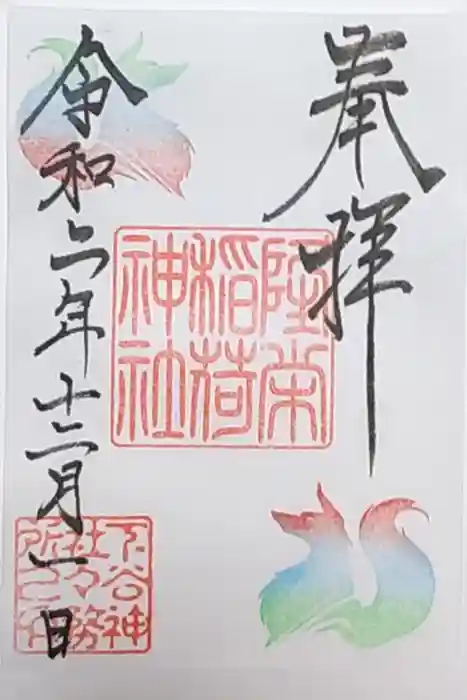 奉拝
隆栄
稲荷
神社
令和六年十二月一日
下谷神
社々務
所之印